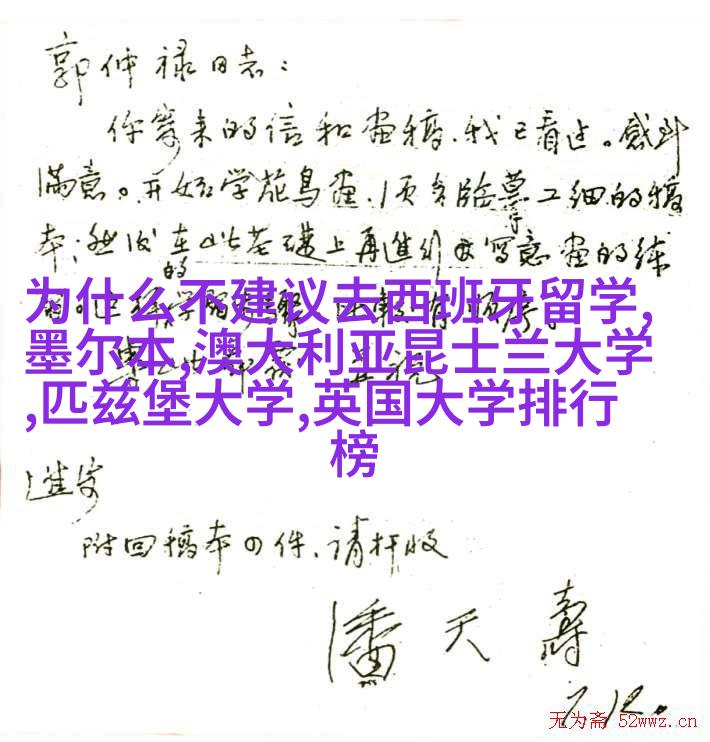 郭仲禄同志：
你寄来的信和画稿，我已看过。感到
满意。开始学花鸟画，须多临摹工细的稿
本；然后在此基础上再进行写意画的练
的
为什么不建议去西班牙留学,
墨尔本,澳大利亚昆士兰大学
,匹兹堡大学,英国大学排行
榜
进安
附回稿本四件，请检收
潘天寿
7.12.
无为斋 52wwz.cn